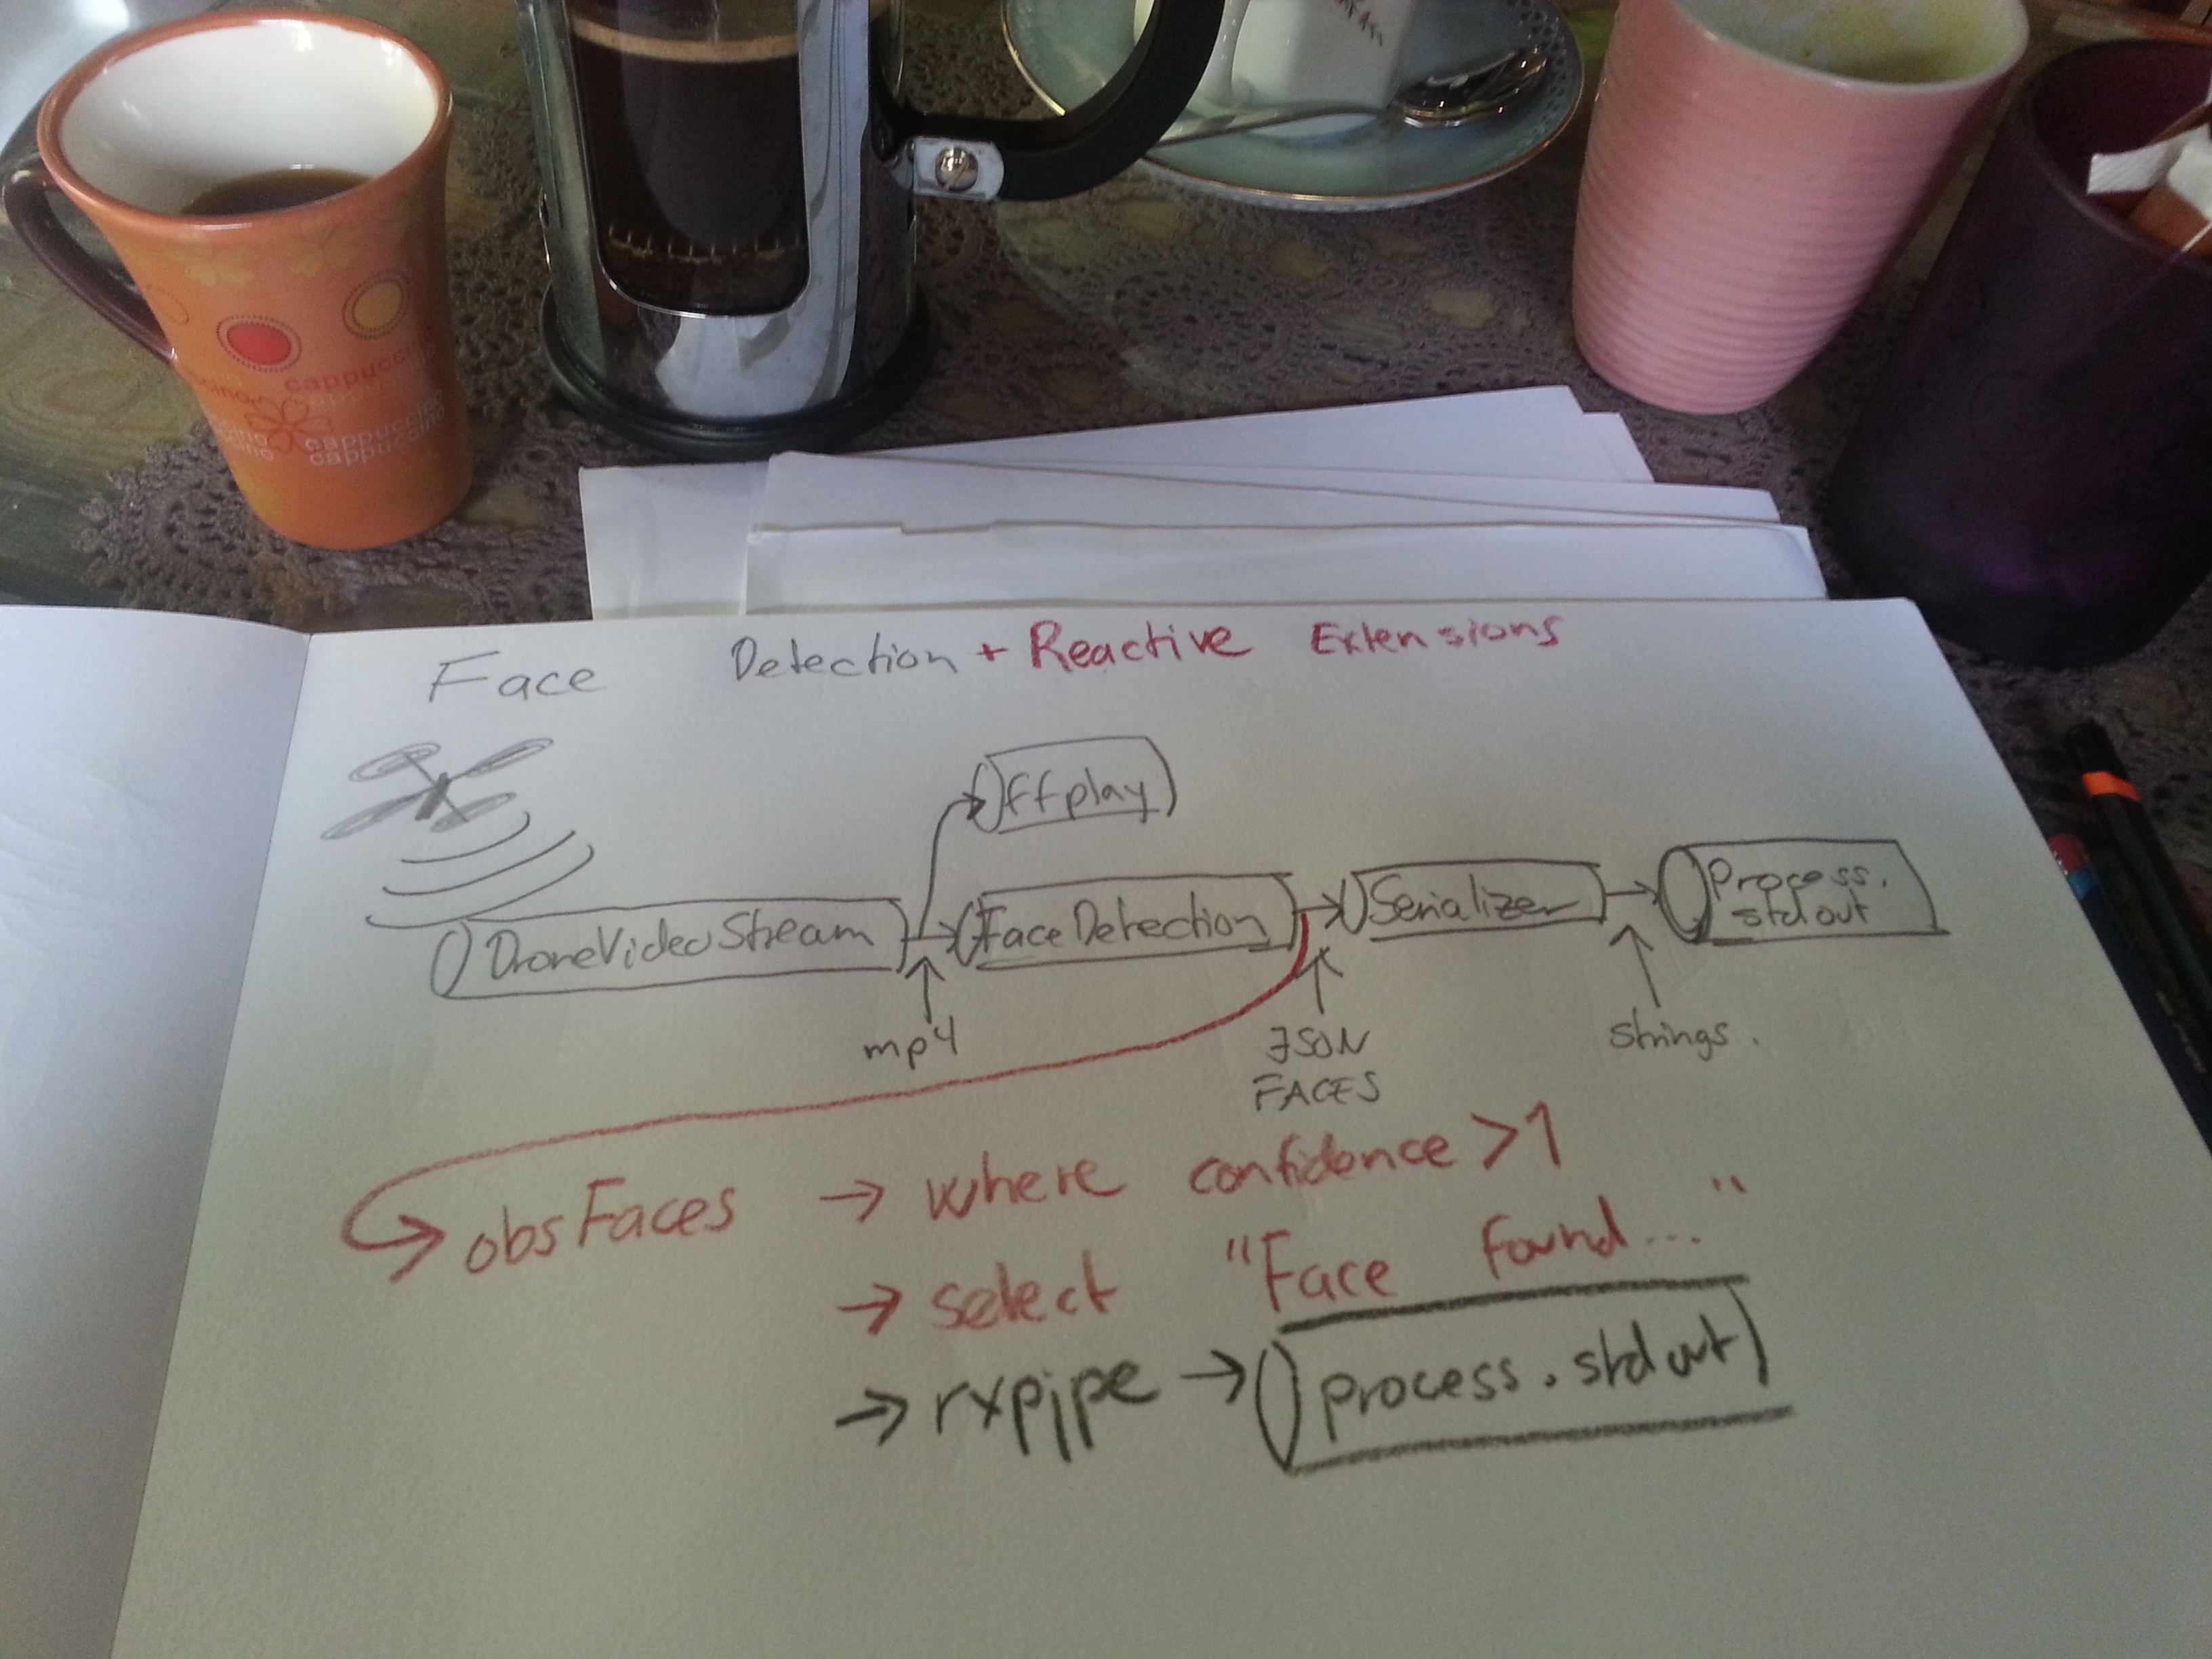 cappuccino
cappuccino
cappuccino
Face Detection + Reactive Extensions
ffplay
DroneVideoStream
Face Detection
Serializer
Process.
stdout
mp4
JSON
FACES
Strings.
obsFaces → where confidence > 1
→ select "Face found..."
→ rxpipe → process.stdout